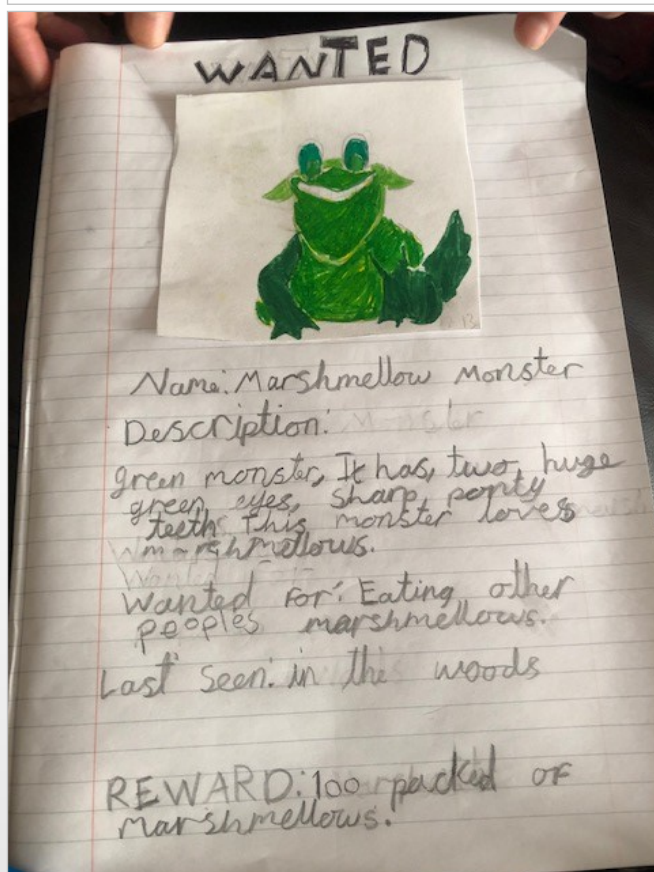 WANTED
Name: Marshmellow Monster
Description:
green monster, It has, two, huge
green, eyes, sharp, ponty
teeth. This, monster loves
marshmellows.
Wanted For: Eating other
peoples marshmellows.
Last seen: in the woods
REWARD: 100 packed of
marshmellows.